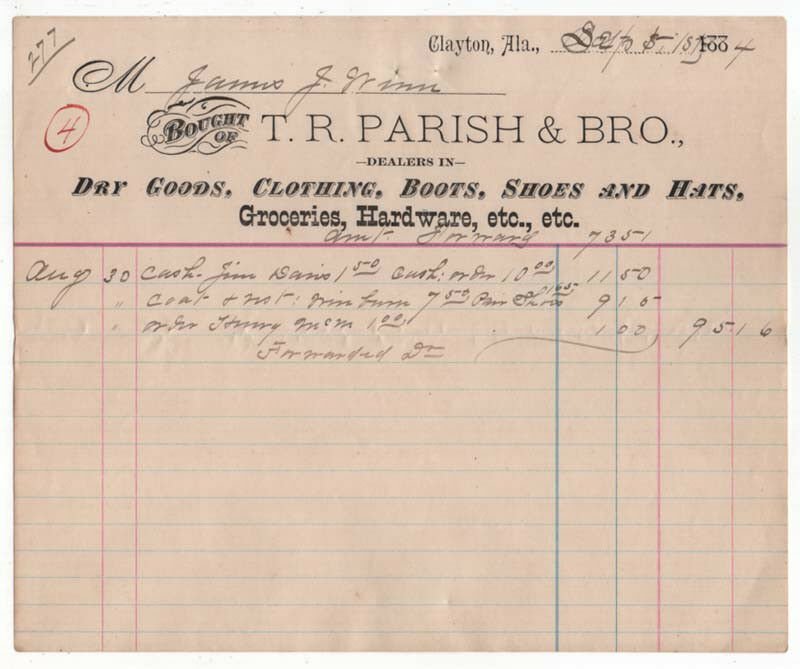 277
Clayton, Ala., Sept 5, 1884
M James J. Winn
4
BOUGHT OF T. R. PARISH & BRO.,
—DEALERS IN—
DRY GOODS, CLOTHING, BOOTS, SHOES AND HATS,
Groceries, Hardware, etc., etc.
Amt Forward 73 51
Aug 30 Cash. Jim Davis 1 50 Cash: order 10 00 11 50
" Coat & vest: 7 50 Pair Shoes 1 65 9 15
" order Henry 1 00 1 00 95.16
Forwarded Dr